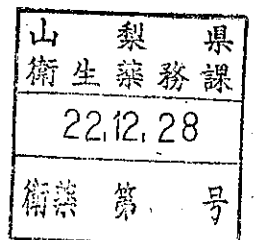 山梨県
衛生薬務課
22.12.28
衛薬第 号